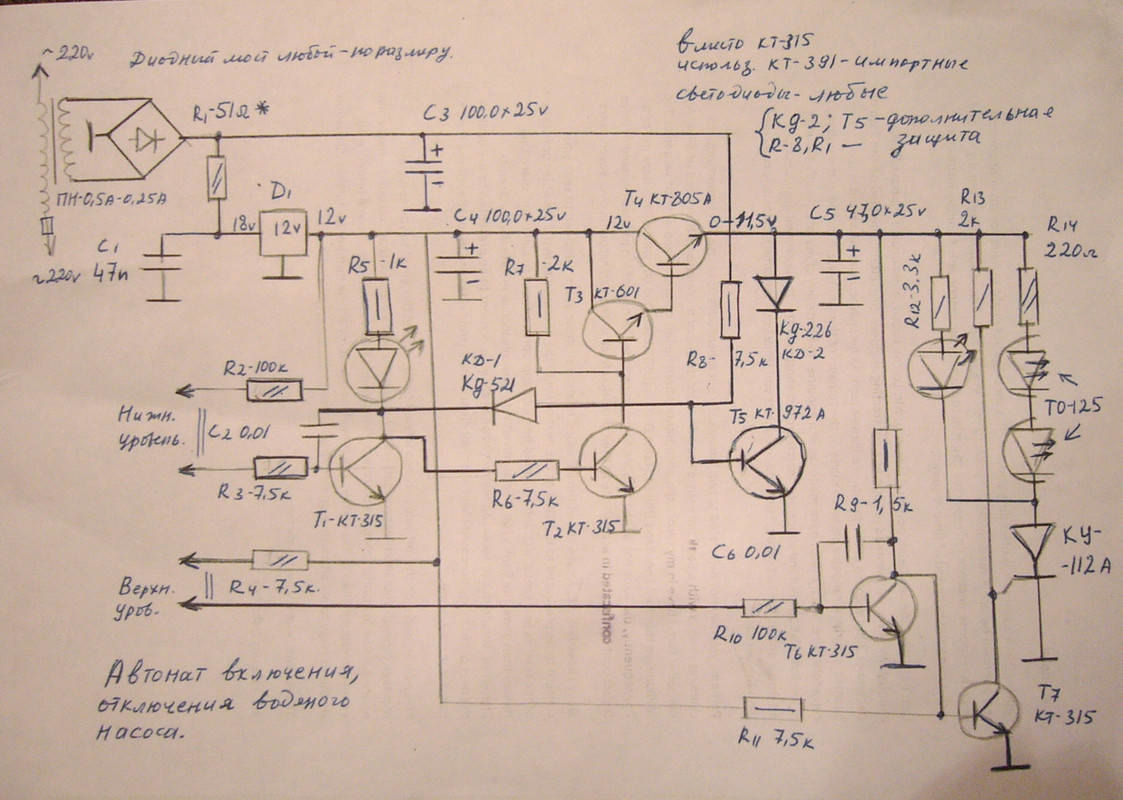 ~220v
Диодный мост любой-по размеру.
вместо КТ-315
использ. КТ-391-импортные
светодиоды-любые
Кд-2; Т5-дополнительная
R-8, R1 — защита
R1-51Ω*
C3 100,0x25v
ПН-0,5А-0,25А
D1
18v
12v
12v
C1
47n
~220v
C4 100,0x25v
T4 КТ-805А
12v
0-11,5v
C5 47,0x25v
R13
2к
R14
220л
R5-1к
R7-2к
T3 КТ-601
R12-3.3к
R8-7,5к
Кд-226
КD-2
R2-100к
КD-1
Кд-521
Нижн.
уровень.
C2 0,01
T5 КТ-972А
ТО-125
R3-7,5к
R6-7,5к
R9-1,5к
T1-КТ-315
T2 КТ-315
C6 0,01
КУ-
-112А
Верхн.
уров.
R4-7,5к.
R10 100к
T6 КТ-315
Автомат включения,
отключения водяного
насоса.
R11 7,5к
T7
КТ-315